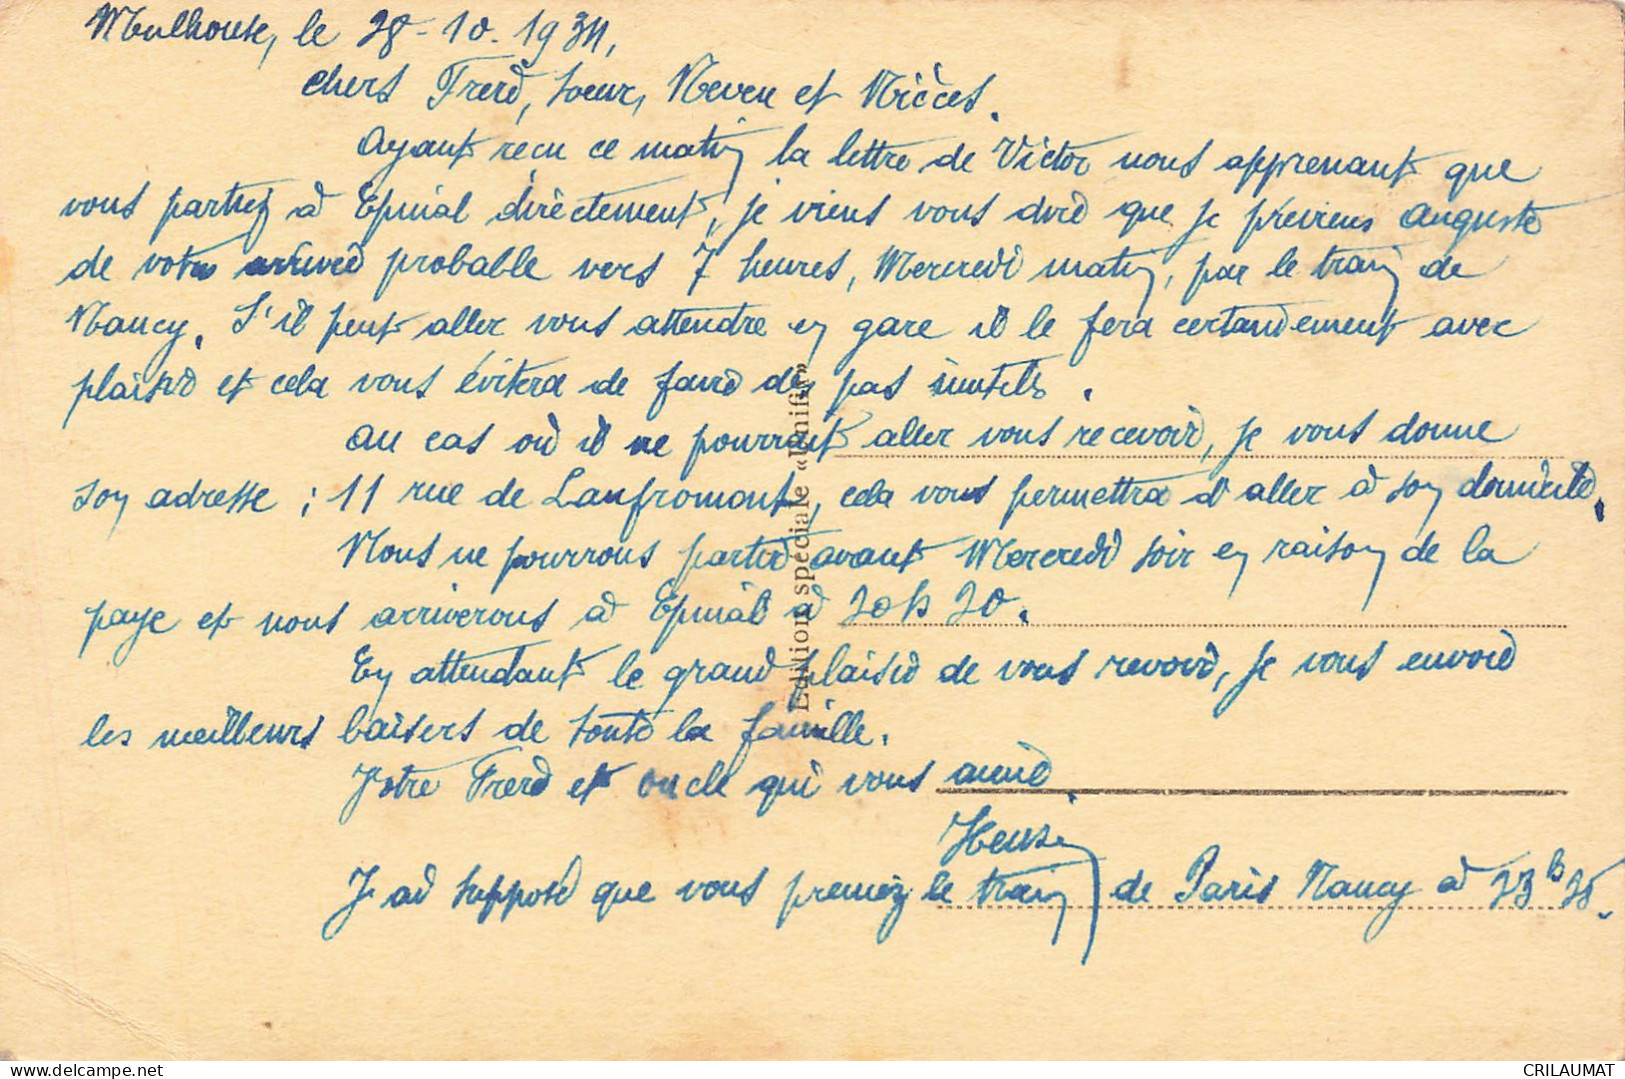 Mulhouse, le 28-10-1934,
Chers Frère, Soeur, Neveu et Nièces.
Ayant reçu ce matin la lettre de Victor nous apprenant que
vous partiez à Epinal directement, je viens vous dire que je préviens Auguste
de votre arrivée probable vers 7 heures, Mercredi matin, par le train de
Nancy. S'il peut aller vous attendre en gare il le fera certainement avec
plaisir et cela vous évitera de faire des pas inutiles.
Au cas où il ne pourrait aller vous recevoir, je vous donne
son adresse : 11 rue de Laufromont, cela vous permettra d'aller à son domicile.
Nous ne pourrons partir avant Mercredi soir en raison de la
paye et nous arriverons à Epinal à 20h20.
En attendant le grand plaisir de vous revoir, je vous envoie
les meilleurs baisers de toute la famille.
Votre Frère et oncle qui vous aime.
Je ai supposé que vous preniez le train de Paris Nancy à 23h25.
Edition spéciale «Unifix»
delcampe.net
CRILAUMAT